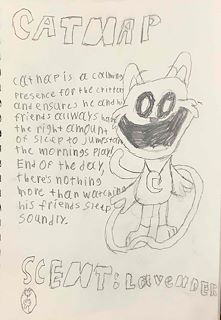 CATNAP
catnap is a calming
presence for the critters
and ensures he and his
friends always have
the right amount
of sleep to jumpstart
the mornings play!
End of the day,
there's nothing
more than watching
his friends sleep
soundly.
C
SCENT: Lavender